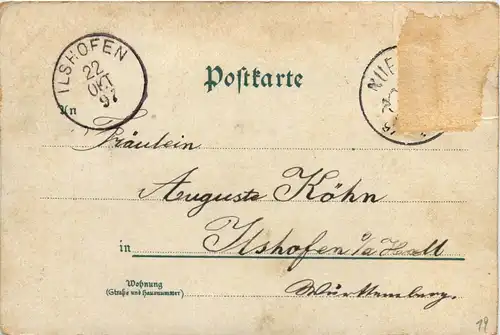 ILSHOFEN
22
OKT
97
Postkarte
An
Fräulein
Auguste Köhn
in Ilshofen o/a Hall
Wohnung
(Straße und Hausnummer)
Württemberg.
19